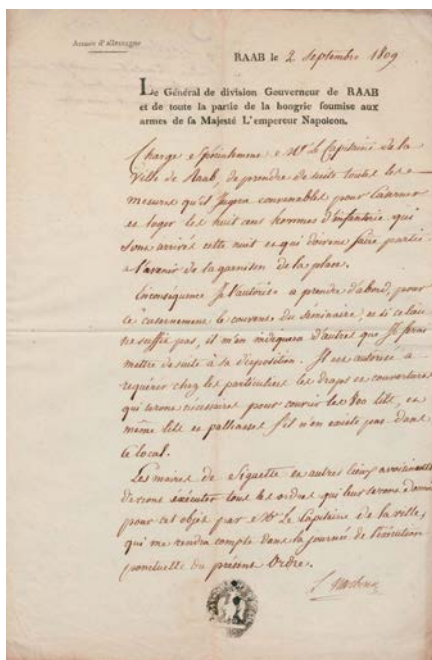 Armée d'allemagne
RAAB le 2 Septembre 1809
Le Général de division Gouverneur de RAAB
et de toute la partie de la hongrie soumise aux
armes de sa Majesté L'empereur Napoleon.
Charge Spécialement Mr. le Capitaine de la
Ville de Raab, de prendre de suite toutes les
mesures qu'il Jugera convenables pour Cazerner
et loger les huit cens hommes d'infanterie qui
sont arrivés cette nuit et qui doivent faire partie
a l'avenir de la garnison de la place.
Enconséquence Je l'autorise a prendre d'abord, pour
ce Casernement le couvent du Séminaire, et si ce lieu
ne suffit pas, il m'en indiquera d'autres que Je ferai
mettre de suite à sa disposition. Il est autorisé a
requérir chez les particuliers les draps et couvertures
qui seront nécessaires pour couvrir les 800 lits, et
même lits et paillasses s'il n'en existe pas dans
le local.
Les maires de et autres lieux
devront exécuter tous les ordres qui leur seront donnés
pour cet objet par Mr. Le Capitaine de la ville,
qui me rendra compte dans la journée de l'exécution
ponctuelle du présent Ordre.
L. Narbonne